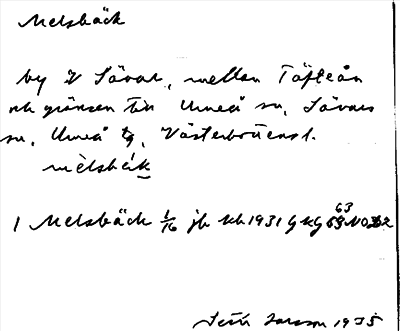 Melsbäck
by V Sävar, mellan Täfteån
och gränsen till Umeå sn, Sävars
sn, Umeå tg, Västerbottens l.
mèlsbä́k
1 Melsbäck 1/16 jb kh 1931 GKG 63 NO
Larsson 1935